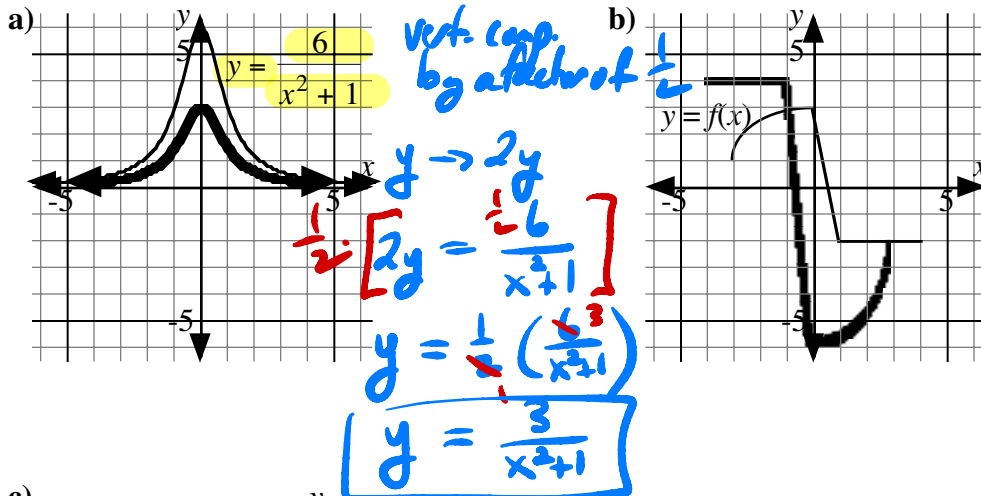 a)
y
5
y = 6 / x² + 1
x
-5
5
-5
vert. comp.
by a factor of 1/2
y → 2y
1/2 · [ 2y = 1/2 6 / x² + 1 ]
y = 1/2 1 ( 6 3 / x² + 1 )
y = 3 / x² + 1
b)
y
5
y = f(x)
x
-5
5
-5
c)
y